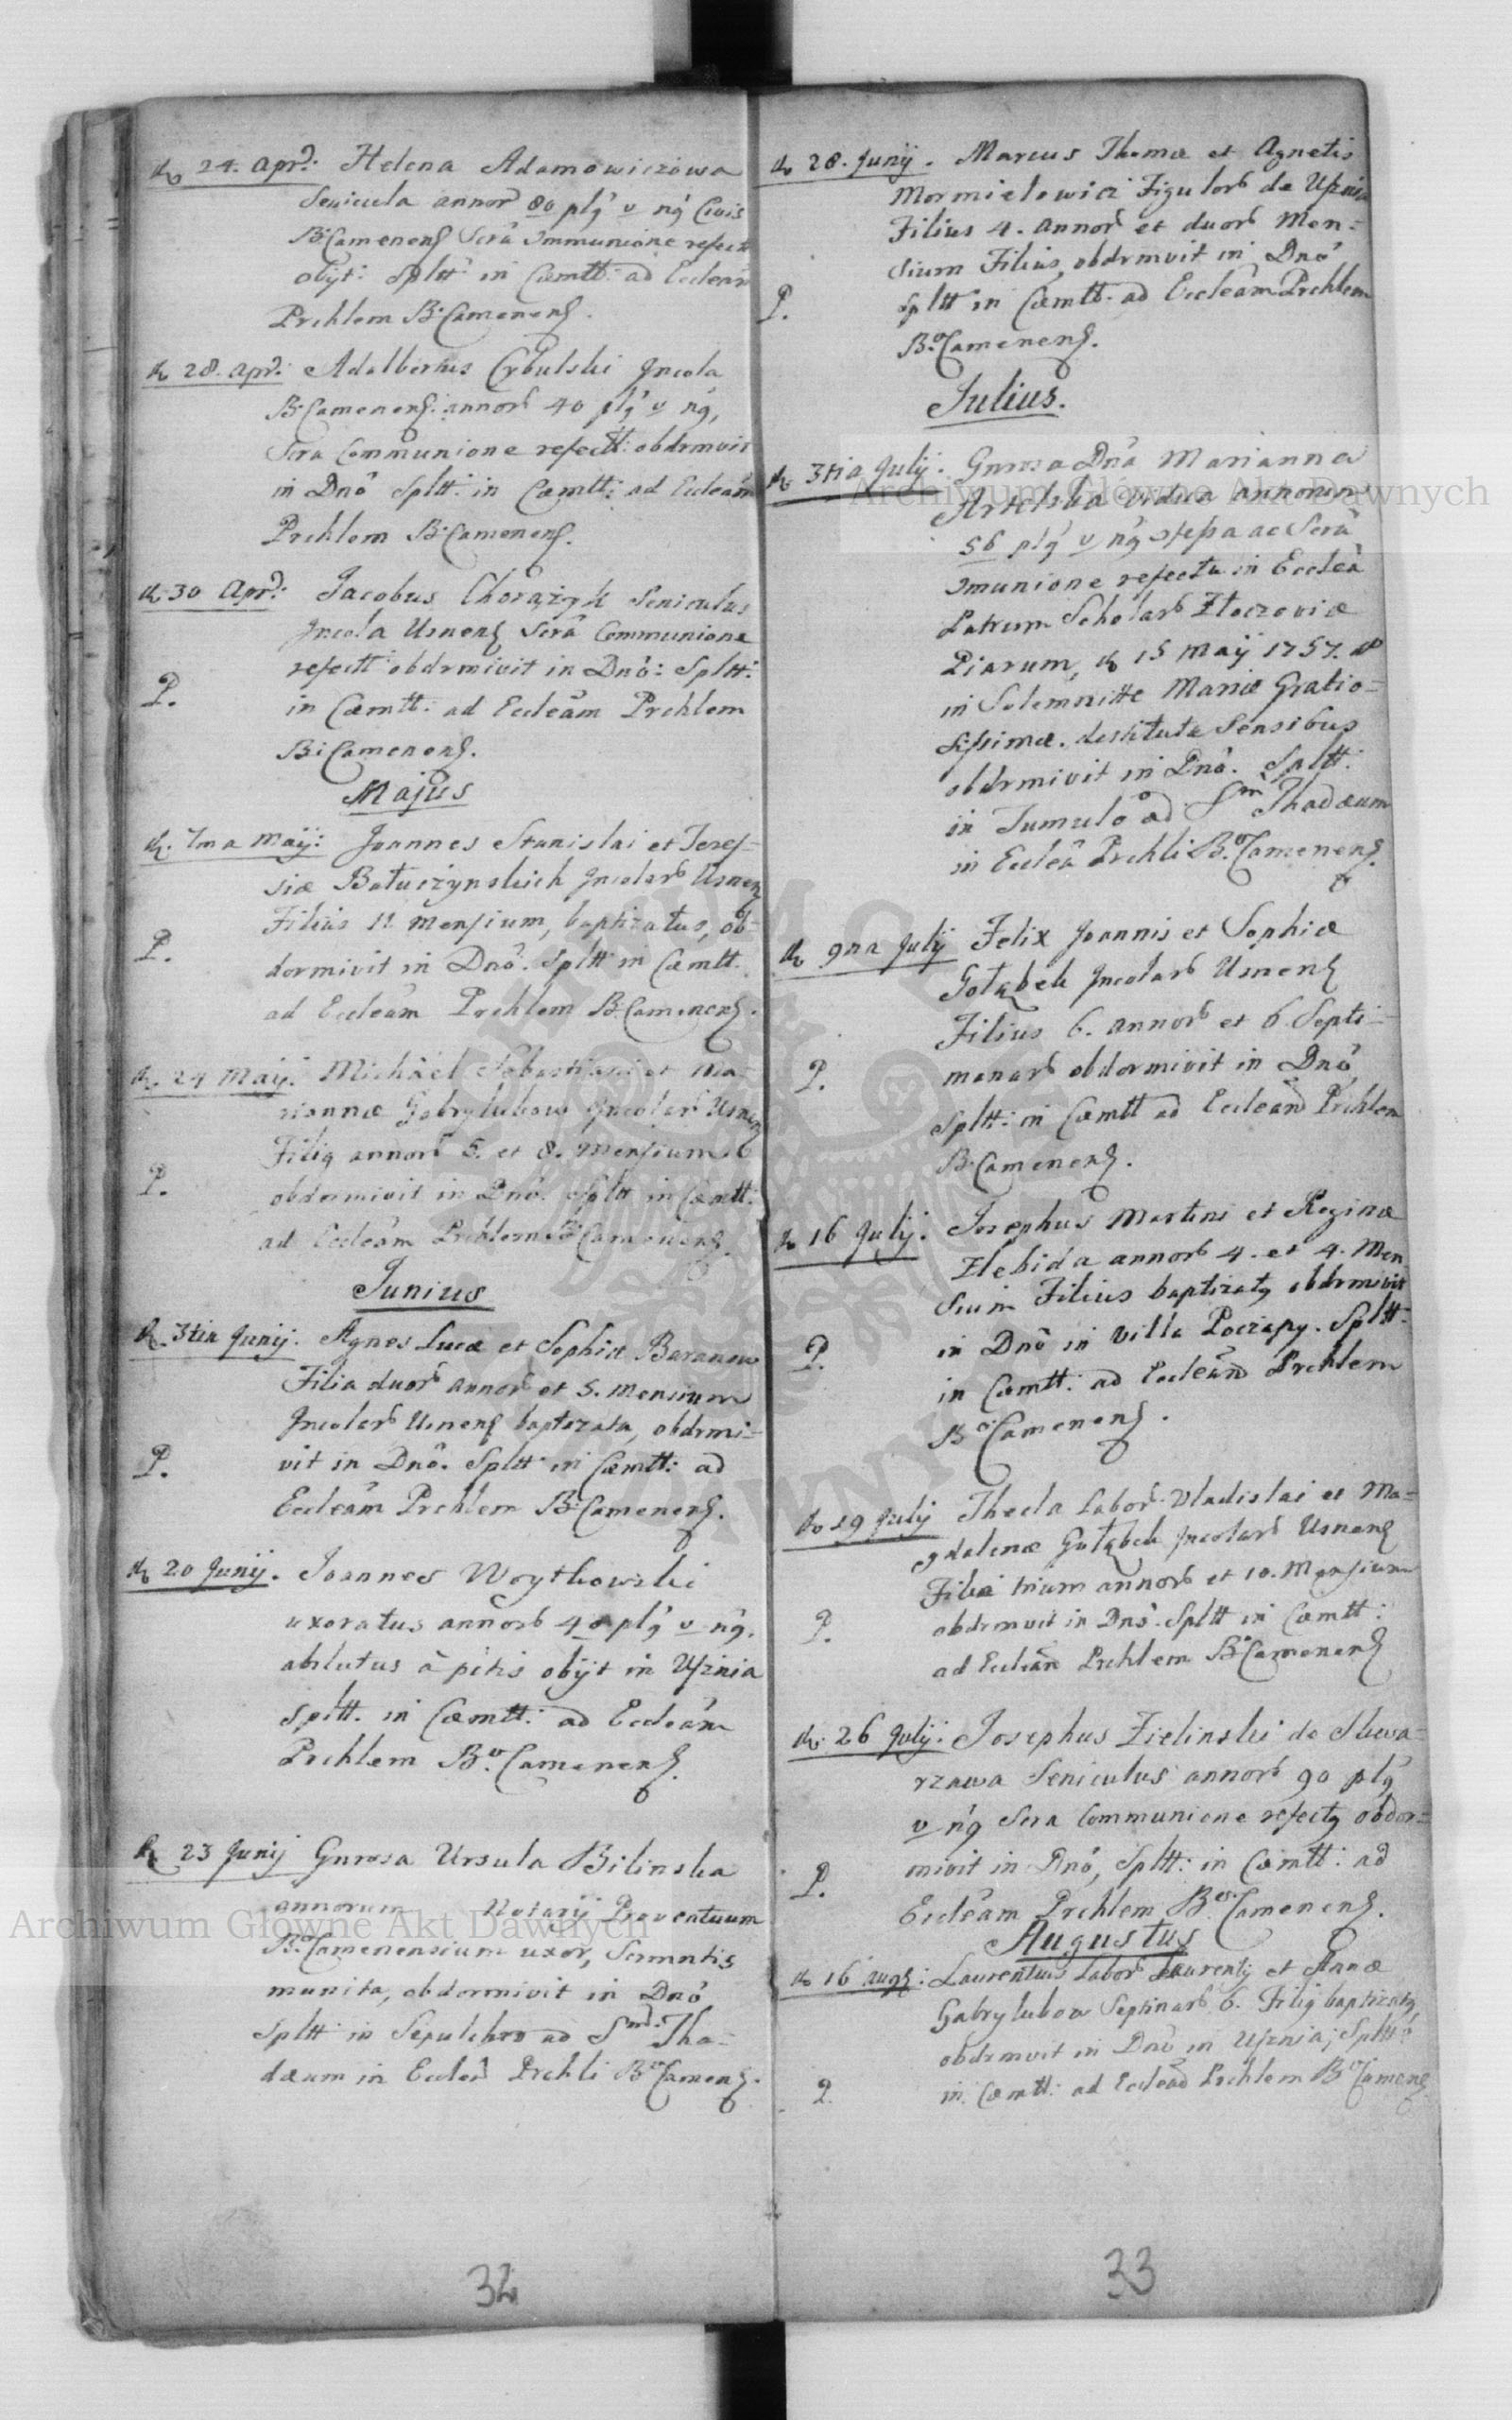 d. 24. Aprl: Helena Adamowiczowa
Senicula annor 80 plg v ng Civis
B: Camenens Scra Communione refect
obyt: Spltt in Cæmtt: ad Eccleam
Prchlem B: Camenens.
d. 28. Apr: Adalbertus Cybulski Incola
B: Camenens: annorb 40 plg v ng,
Scra Communione refectt: obdrmvit
in Dnō Spltt: in Cæmtt: ad Eccleam
Prchlem B: Camenens.
d. 30 Apr: Jacobus Chorążyk Seniculus
Incola Usnens Scrâ Communione
refectt obdrmivit in Dnō: Spltt:
P. in Cæmtt: ad Eccleãm Prchlem
B: Camenens.
Majus
d. 7ma Maij: Joannes Stanislai et Teres-
siæ Batuczynskich Incolarb Usnens
Filius 11 Mensium, baptizatus, ob-
P. dormivit in Dnō. Spltt in Cæmtt.
ad Eccleãm Prchlem B: Camenens.
d. 24 Maij. Michäel Sebastiani et Ma-
riannæ Gabrylukow Incolarb Usnens
Filig annorb 5. et 8. Mensium
P. obdormivit in Dnō. Spltt in Cæmtt:
ad Eccleãm Prchlem B: Camenens
Junius
d. 3tia Junij. Agnes Lucæ et Sophiæ Baranow
Filia duorb annorb et 5. Mensium
Incolarb Usnens baptizata, obdrmi-
P. vit in Dnō. Spltt in Cæmtt: ad
Eccleãm Prchlem B: Camenens.
d. 20 Junij. Joannes Woytkowski
uxoratus annorb 40 plg v ng.
ablutus à pctis obijt in Uśznia
Spltt. in Cæmtt: ad Eccleãm
Prchlem Bo. Camenens.
d. 23 Junij Gnrosa Ursula Bilinska
annorum Notarij Proventuum
Bo. Camenensium uxor, Scrmntis
munita, obdormivit in Dnō
Spltt in Sepulchro ad Smd: Tha-
dæum in Ecclea Prchli Bo Camens.
32
d. 28. Junij. Marcus Thomæ et Agnetis
Mormielowicz Figulorb de Uśznia
Filius 4. annorb et duorb Men-
sium Filius, obdrmvit in Dnō
P. Spltt in Cæmtt. ad Eccleãm Prchlem
Bo. Camenens.
Julius.
d. 3tia Julij. Gnrosa Dna Marianna
vidua annorum
56 plg v ng ac Scrâ
Communione refecta in Ecclea
Patrum Scholarb Złoczoviæ
Piarum, d. 15 Maij 1757.
in Solemnitte Mariæ Gratio-
sissimæ. destituta Sensibus
obdrmivit in Dnō. Spltt.
in Tumulō ad Sm Thadæum
in Ecclea Prchli Bo. Camenens.
d. 9na Julij Felix Joannis et Sophiæ
Gołąbek Incolarb Usnens
Filius 6. annorb et 6 Septi-
P. manarb obdormivit in Dnō
Spltt: in Cæmtt ad Eccleam Prchlem
B: Camenens.
d. 16 Julij. Josephus Martini et Reginæ
Zlebida annorb 4. et 4. Men
sium Filius baptizatg obdrmivit
P. in Dnō in Villa Poczapy. Spltt.
in Cæmtt: ad Eccleam Prchlem
B: Camenens.
d. 19 Julij Thecla Labor. Vladislai et Ma-
gdalenæ Gołąbek Incolarb Usnens
Filia trium annorb et 10. Mensium
P. obdrmvit in Dnō. Spltt in Cæmtt:
ad Eccleãm Prchlem B: Camenens
d. 26 Julij. Josephus Zielinski de Skwa-
rzawa Seniculus annorb 90 plg
v ng Scra Communione refectg obdor-
P. mivit in Dnō, Spltt: in Cæmtt: ad
Eccleãm Prchlem B: Camenens.
Augustus
d. 16 Augs: Laurentius Labor Laurentij et Annæ
Gabrylukow Septinarb 6. Filig baptizatg,
obdrmvit in Dnō in Uśznia, Spltt:
P. in Cæmtt: ad Eccleãm Prchlem Bo Camens
33
Archiwum Główne Akt Dawnych
Archiwum Główne Akt Dawnych